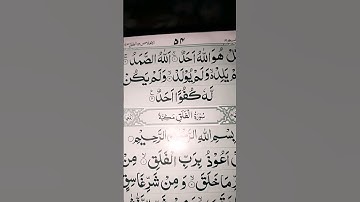 ۵۴
هُوَ اللّٰهُ اَحَدٌ ۚ اَللّٰهُ الصَّمَدُ ۚ
يَلِدْ ۙ وَلَمْ يُوْلَدْ ۙ وَلَمْ يَكُنْ
لَّهٗ كُفُوًا اَحَدٌ
سُوْرَةُ الْفَلَقِ مَكِّيَّةٌ
بِسْمِ اللّٰهِ الرَّحْمٰنِ الرَّحِيْمِ
اَعُوْذُ بِرَبِّ الْفَلَقِ ۙ مِنْ
مَا خَلَقَ ۙ وَمِنْ شَرِّ غَاسِقٍ